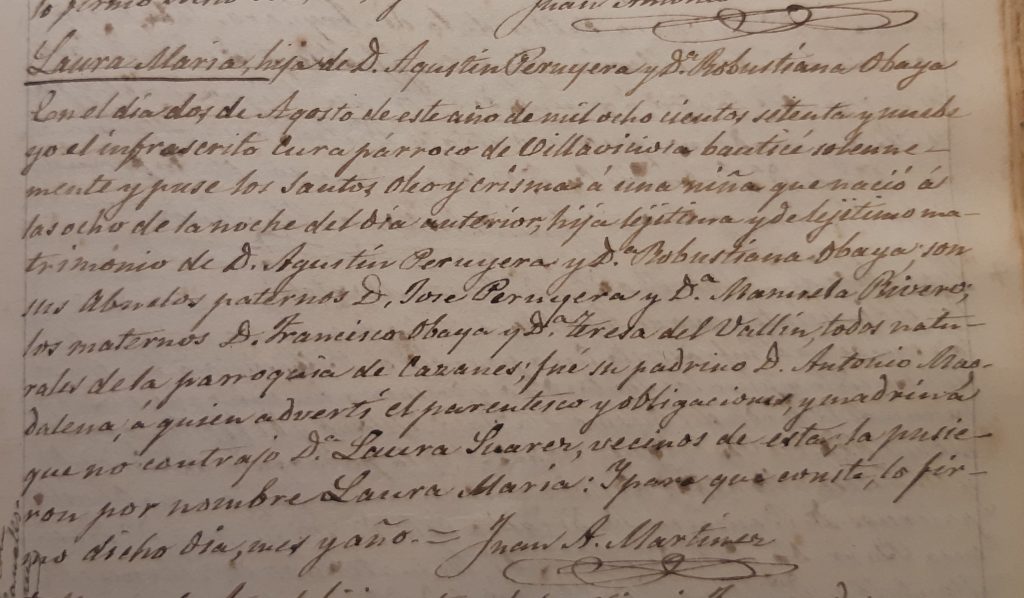 Juan Antonio
Laura Maria, hija de D. Agustin Peruyera y D.ª Robustiana Obaya
En el dia dos de Agosto de este año de mil ocho cientos setenta y nuebe
yo el infrascrito Cura párroco de Villaviciosa bauticé solemne-
mente y puse los Santos Oleo y crisma á una niña que nació á
las ocho de la noche del dia anterior, hija lejitima y de lejitimo ma-
trimonio de D. Agustin Peruyera y D.ª Robustiana Obaya son
sus Abuelos paternos D. Jose Peruyera y D.ª Manuela Rivero;
los maternos D. Francisco Obaya y D.ª Teresa del Vallin, todos natu-
rales de la parroquia de Cazanes; fué su padrino D. Antonio Mag-
dalena, á quien advertí el parentesco y obligaciones, y madrina
que no contrajo D.ª Laura Suarez, vecinos de esta; la pusie-
ron por nombre Laura Maria: Y para que conste, lo fir-
mo dicho dia, mes y año. = Juan A. Martinez